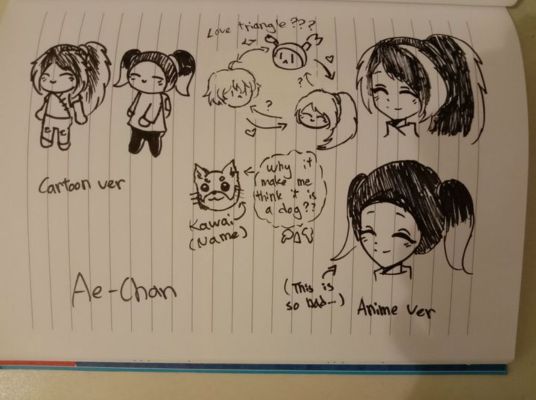 Love triangle???
?
?
Cartoon ver
why it
make me
think it is
a dog??
Kawai
(Name)
Ae-Chan
(This is
so bad...)
Anime ver